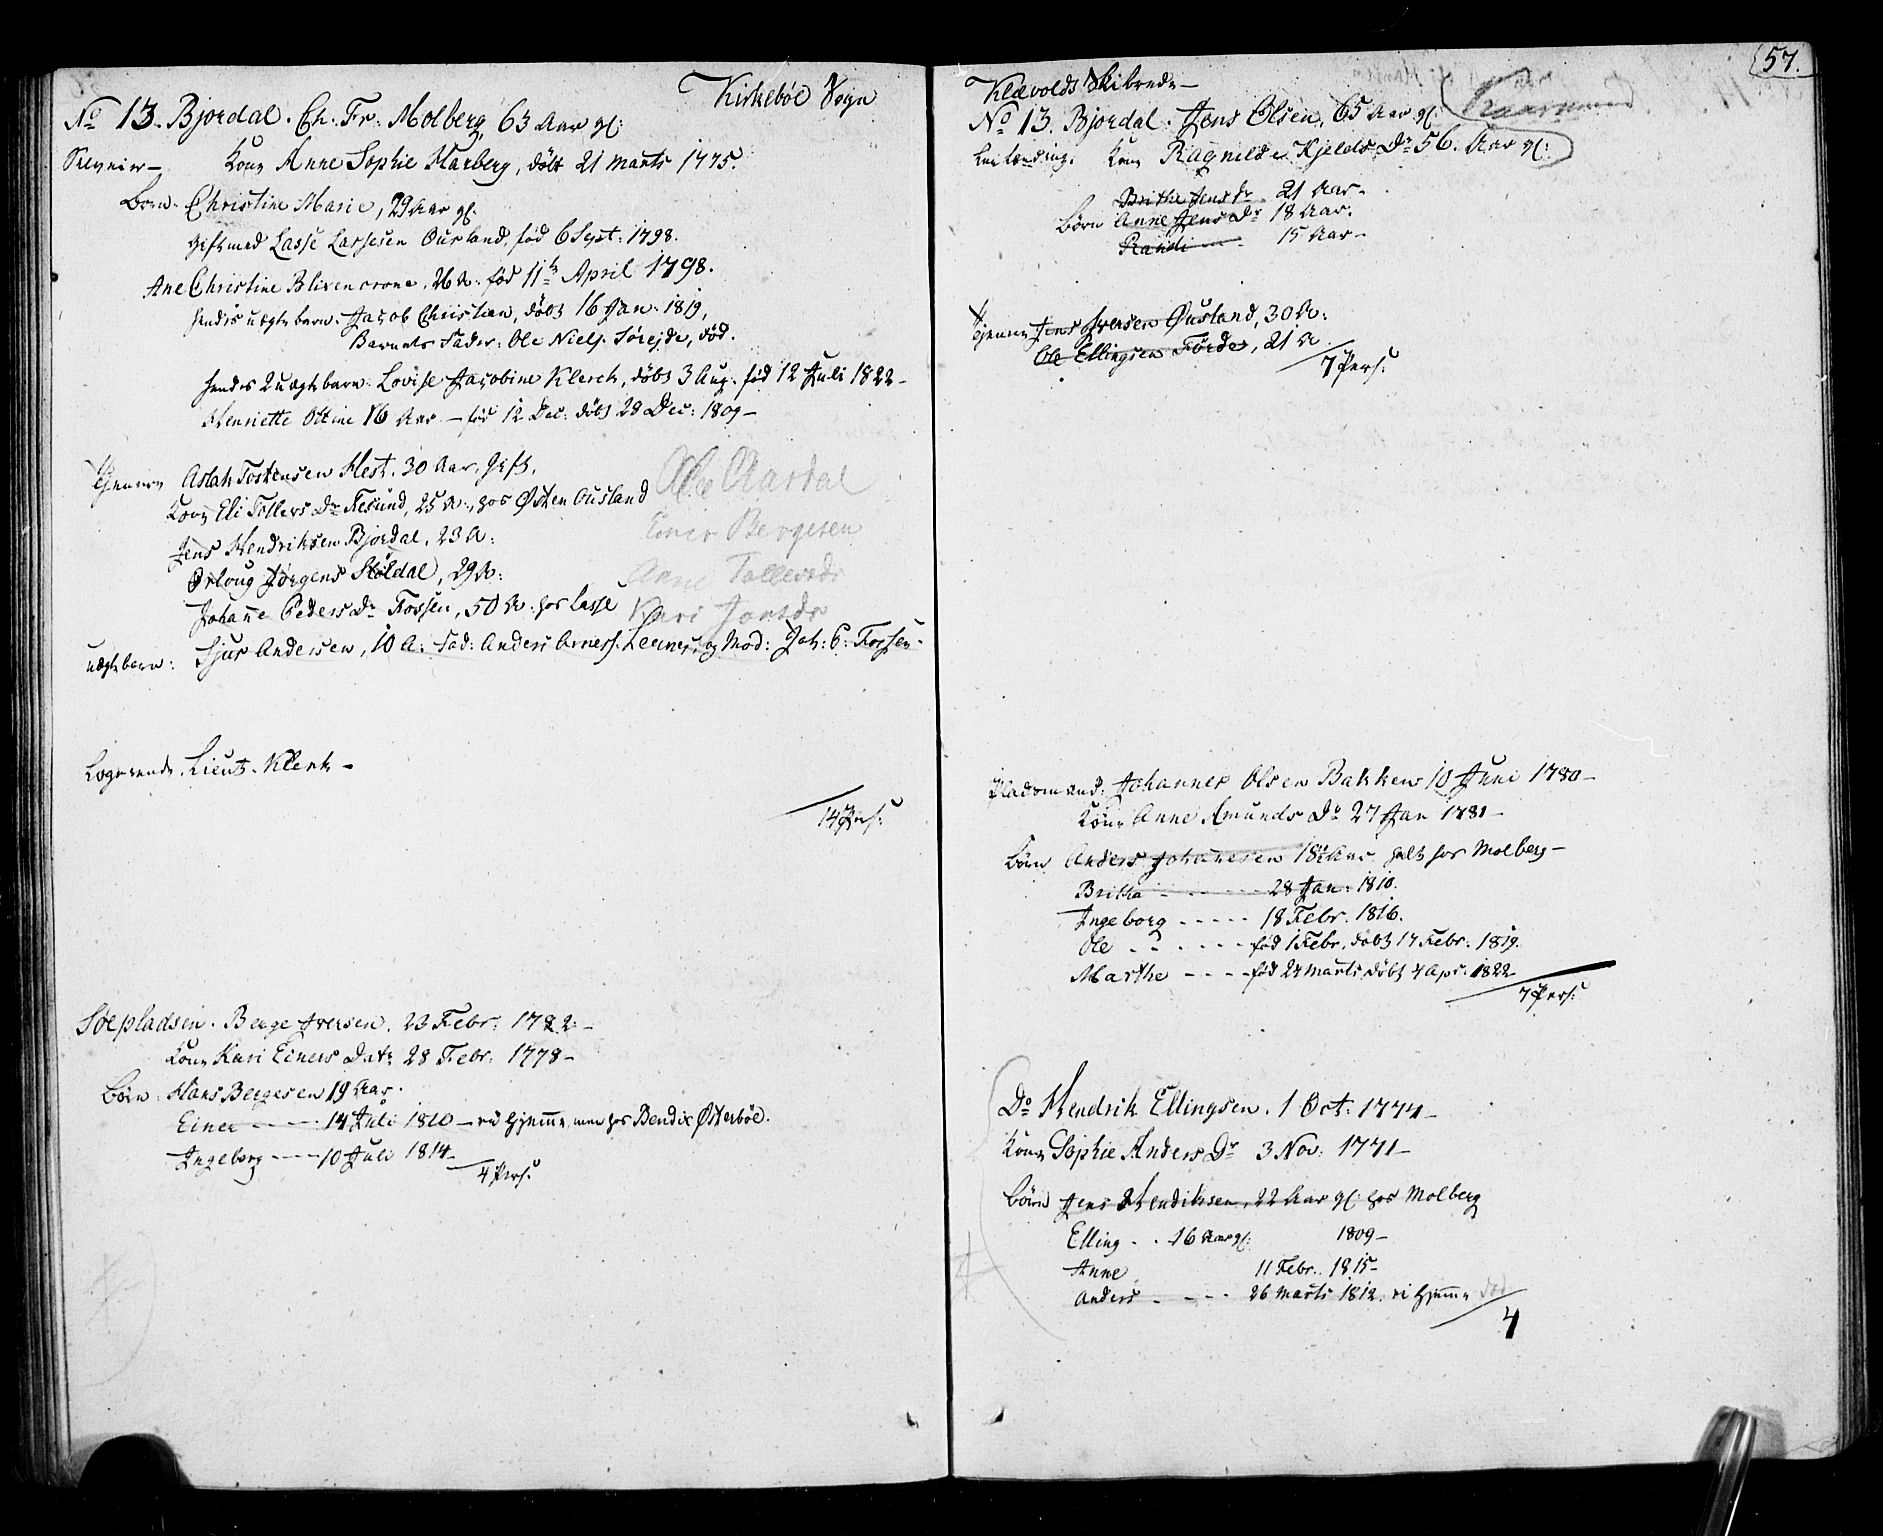 Kirkeböe Sogn
No 13. Bjordal. Ch. Fr. Molberg 63 Aar gl:
Kone Anne Sophie Harberg, döbt 21 Marts 1775.
Börn. Christine Marie, 29 Aar gl.
Gift med Lasse Lassesen Ousland, föd 6 Sept: 1798.
Ane Christine Blixencrone, 26 A. föd 11te April 1798.
hendes uægte barn. Jacob Christian, döbt 16 Jan. 1819,
Barnets Fader: Ole Niels. Sörejde, död.
hendes 2 uægte barn: Lovise Jacobine Klerck, döbt 3 Aug. föd 12 Juli 1822-
Henriette Oltine 16 Aar - föd 12 Dec: döbt 28 Dec: 1809-
Tjenere Aslak Tostensen Hest. 30 Aar. Gift.
Ole Aardal
Kone Eli Tollevs Dr Fesund, 25 A., hos Østen Ousland
Einer Bergesen
Jens Hendriksen Bjordal. 23 A:
Anne Tollevsdr
Orloug Jörgens Stöldal, 29 A:
Johane Peders Dr Fossen, 50 A. hos Lasse
Kari Jonsdr
uægte barn: Sjur Andersen, 10 A: Fad: Anders Arness. og Mod: Joh: P: Fossen.
Logerende. Lieut. Klerk-
14 Pers:
Söepladsen. Berge Iversen. 23 Febr: 1782-
Kone Kari Einers Datr 28 Febr. 1778-
Börn: Hans Bergesen 19 Aar.
Einer - - - - 14 Juli 1810 - ei hjemme, men hos Bendix Østerböe.
Ingeborg - - - - 10 Juli 1814-
4 Pers:
57.
Klævolds Skibrede-
No 13. Bjordal. Jens Olsen, 65 Aar gl.
Leilænding. Kone Ragnilde Kjelds Dr 56. Aar gl:
Brithe Jens Dr 21 Aar-
Börn Anne Jens Dr 18 Aar.
Randi - - 15 Aar-
Tjenere Jens Iversen Øusland, 30 A:
Ole Ellingsen Förde, 21 A.
7 Pers:
Pladsmand: Johannes Olsen Bakken 10 Juni 1780-
Kone Anne Amunds Dr 27 Jan 1781-
Börn Anders Johannesen 18½ Aar hos Molberg-
Britha - - - - - 28 Jan: 1810.
Ingeborg - - - - - 18 Febr. 1816.
Ole - - - - - föd 1 Febr. döbt 17 Febr. 1819.
Marthe - - - - föd 24 Marts döbt 4 Apr. 1822
7 Pers:
Do Hendrik Ellingsen. 1 Oct: 1774-
Kone Sophie Anders Dr 3 Nov: 1771-
Börn Jens Hendriksen, 22 Aar gl: hos Molberg
Elling - - 16 Aar gl: 1809-
Anne 11 Febr. 1815-
Anders - - - - 26 Marts 1812. ei hjemme
4